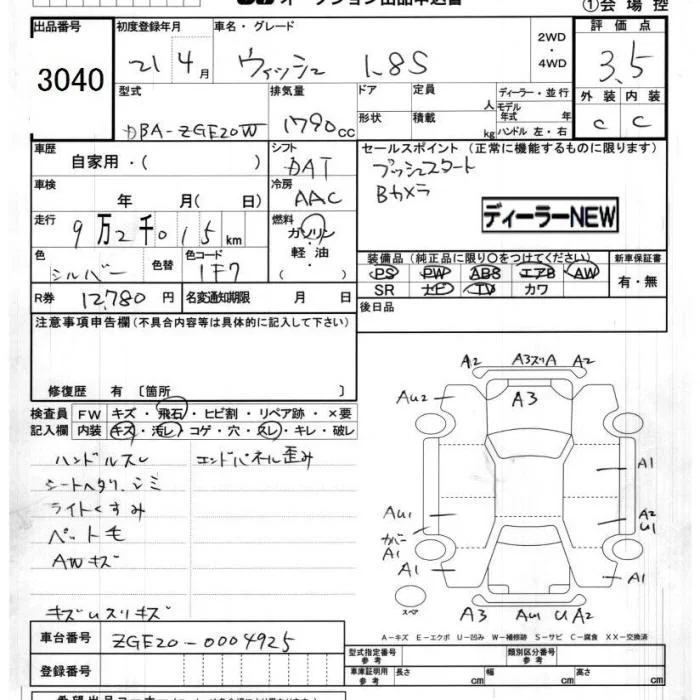 オークション出品申込書
①会場控
出品番号 初度登録年月 車名・グレード 2WD・4WD 評価点
3040 21 4月 ウィッシュ 1.8S 3.5
型式 排気量 ドア 定員 人 ディーラー・並行 外装 内装
DBA-ZGE20W 1790cc 形状 積載 kg モデル年式 年 ハンドル 左・右 C C
車歴 自家用・( ) シフト DAT セールスポイント(正常に機能するものに限ります)
プッシュスタート
Bカメラ
車検 年 月( 日) 冷房 AAC
ディーラーNEW
走行 9万2千015km 燃料 ガソリン・軽油・( )
色 シルバー 色替 色コード 1F7
装備品(純正品に限り○をつけてください) 新車保証書
PS PW ABS エアB AW 有・無
SR ナビ TV カワ
R券 12,780円 名変通知期限 月 日 後日品
注意事項申告欄(不具合内容等は具体的に記入して下さい)
修復歴 有〔箇所 〕
検査員 FW キズ・飛石・ヒビ割・リペア跡・×要
記入欄 内装 キズ・汚レ・コゲ・穴・スレ・キレ・破レ
ハンドルスレ エンドパネル歪み
シートヘタリ、シミ
ライトくすみ
ペット毛
AWキズ
キズUスリキズ
A2 A3スリA A2
AU2 A3
A1
AU1 A2 U1
カバーA1
A1 A1
スペア
A3 AU1 U A2
A-キズ E-エクボ U-凹み W-補修跡 S-サビ C-腐食 XX-交換済
車台番号 ZGE20-0004925
登録番号
型式指定番号 参考 類別区分番号 参考
車庫証明用 参考 長さ cm 幅 cm 高さ cm